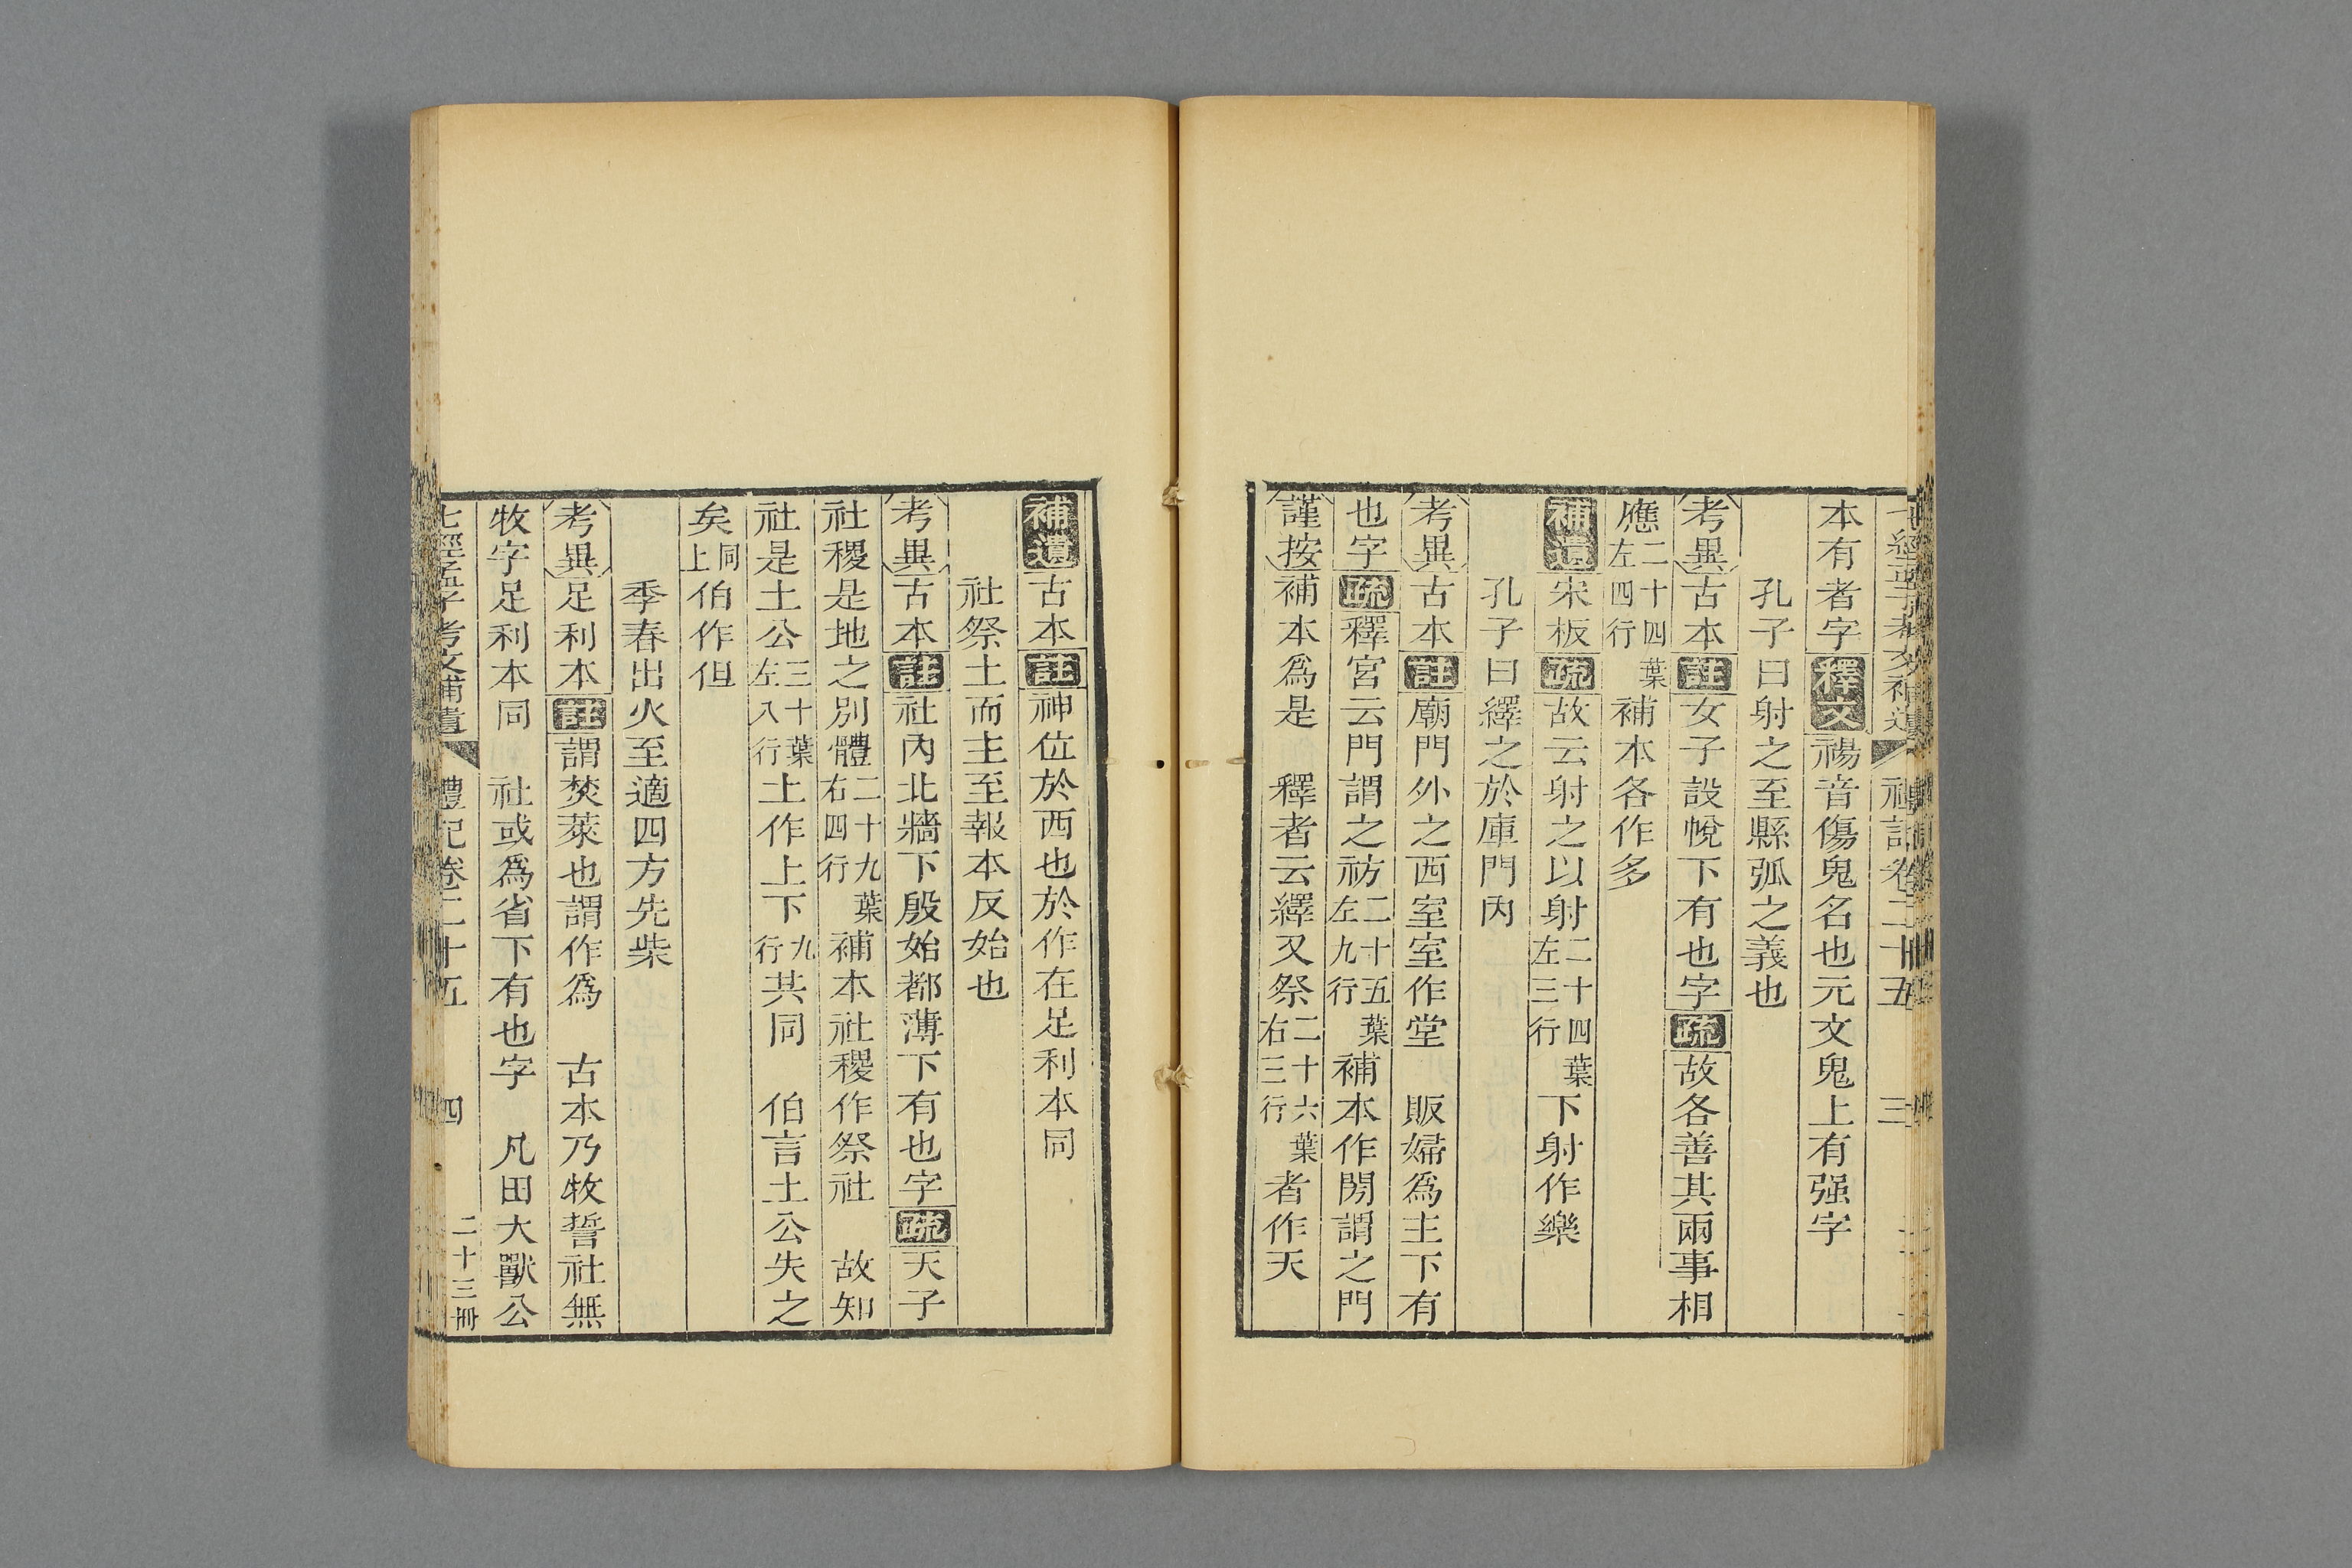 禮記卷二十五　三
本有者字釋文禓音傷鬼名也元文鬼上有强字
孔子曰射之至縣弧之義也
考異古本註女子設帨下有也字疏故各善其兩事相
應二十四葉左四行補本各作多
補遺宋板疏故云射之以射二十四葉左三行下射作樂
孔子曰繹之於庫門內
考異古本註廟門外之西室室作堂　販婦為主下有
也字疏釋宮云門謂之祊二十五葉左九行補本作閍謂之門
謹按補本為是　釋者云繹又祭二十六葉右三行者作天
補遺古本註神位於西也於作在足利本同
社祭土而主至報本反始也
考異古本註社內北牆下殷始都薄下有也字疏天子
社稷是地之別體二十九葉右四行補本社稷作祭社　故知
社是土公三十葉左八行土作上下九行共同　伯言土公失之
矣同上伯作但
季春出火至適四方先柴
考異足利本註謂焚萊也謂作為　古本乃牧誓社無
牧字足利本同　社或為省下有也字　凡田大獸公
七經孟子考文補遺　禮記卷二十五　四　二十三冊